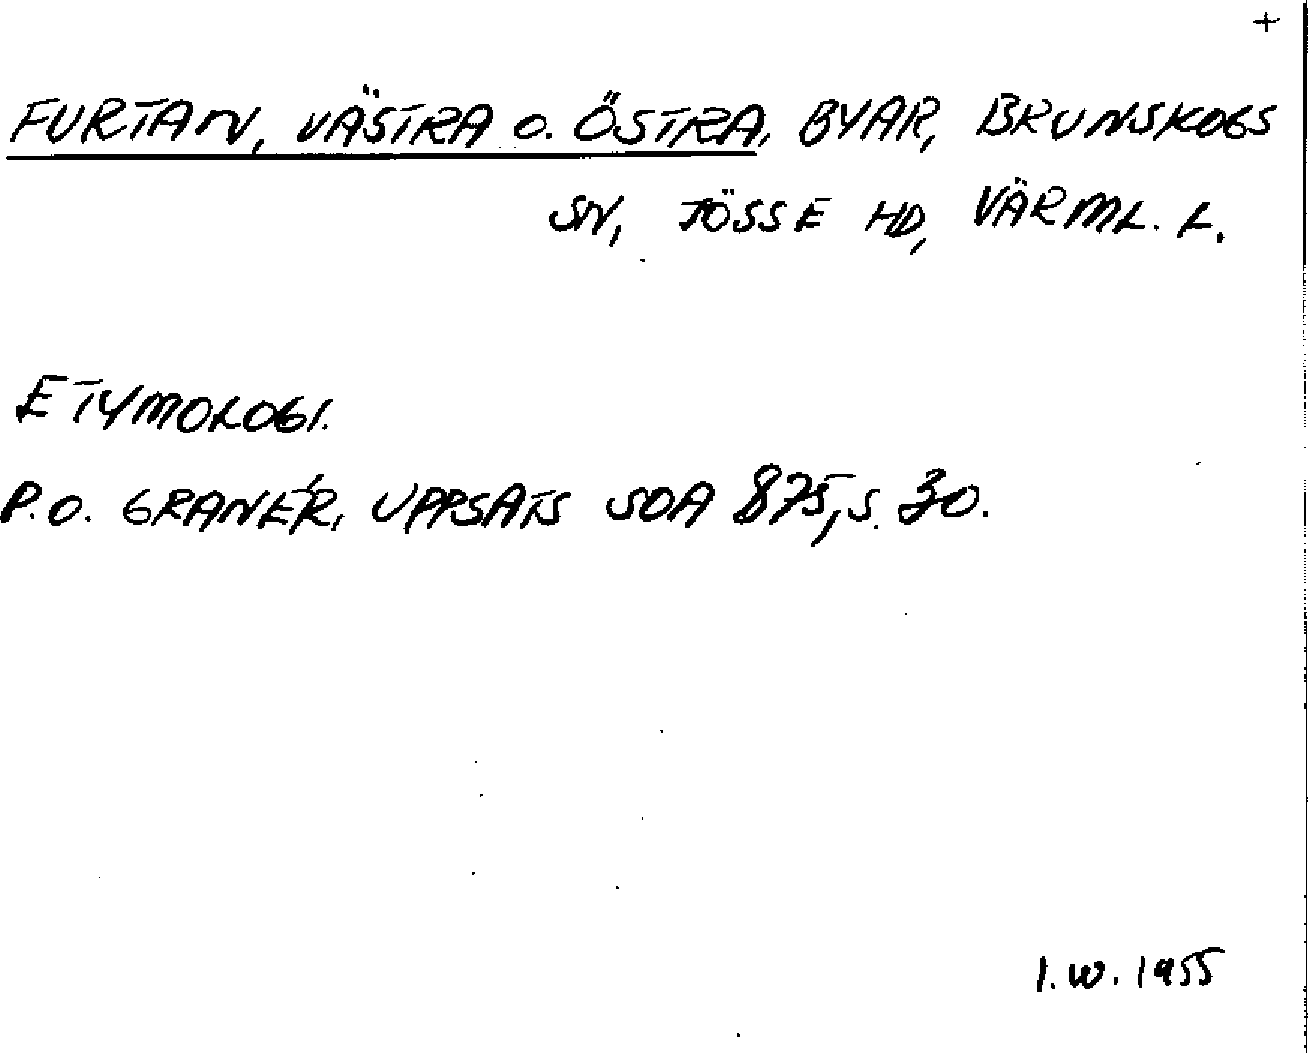 +
FURTAN, VÄSTRA o. ÖSTRA, BYAR, BRUNSKOGS
SN, JÖSSE HD, VÄRML. L.
ETYMOLOGI.
P.O. GRANÉR, UPPSATS SOA 875, S. 30.
I.W. 1955